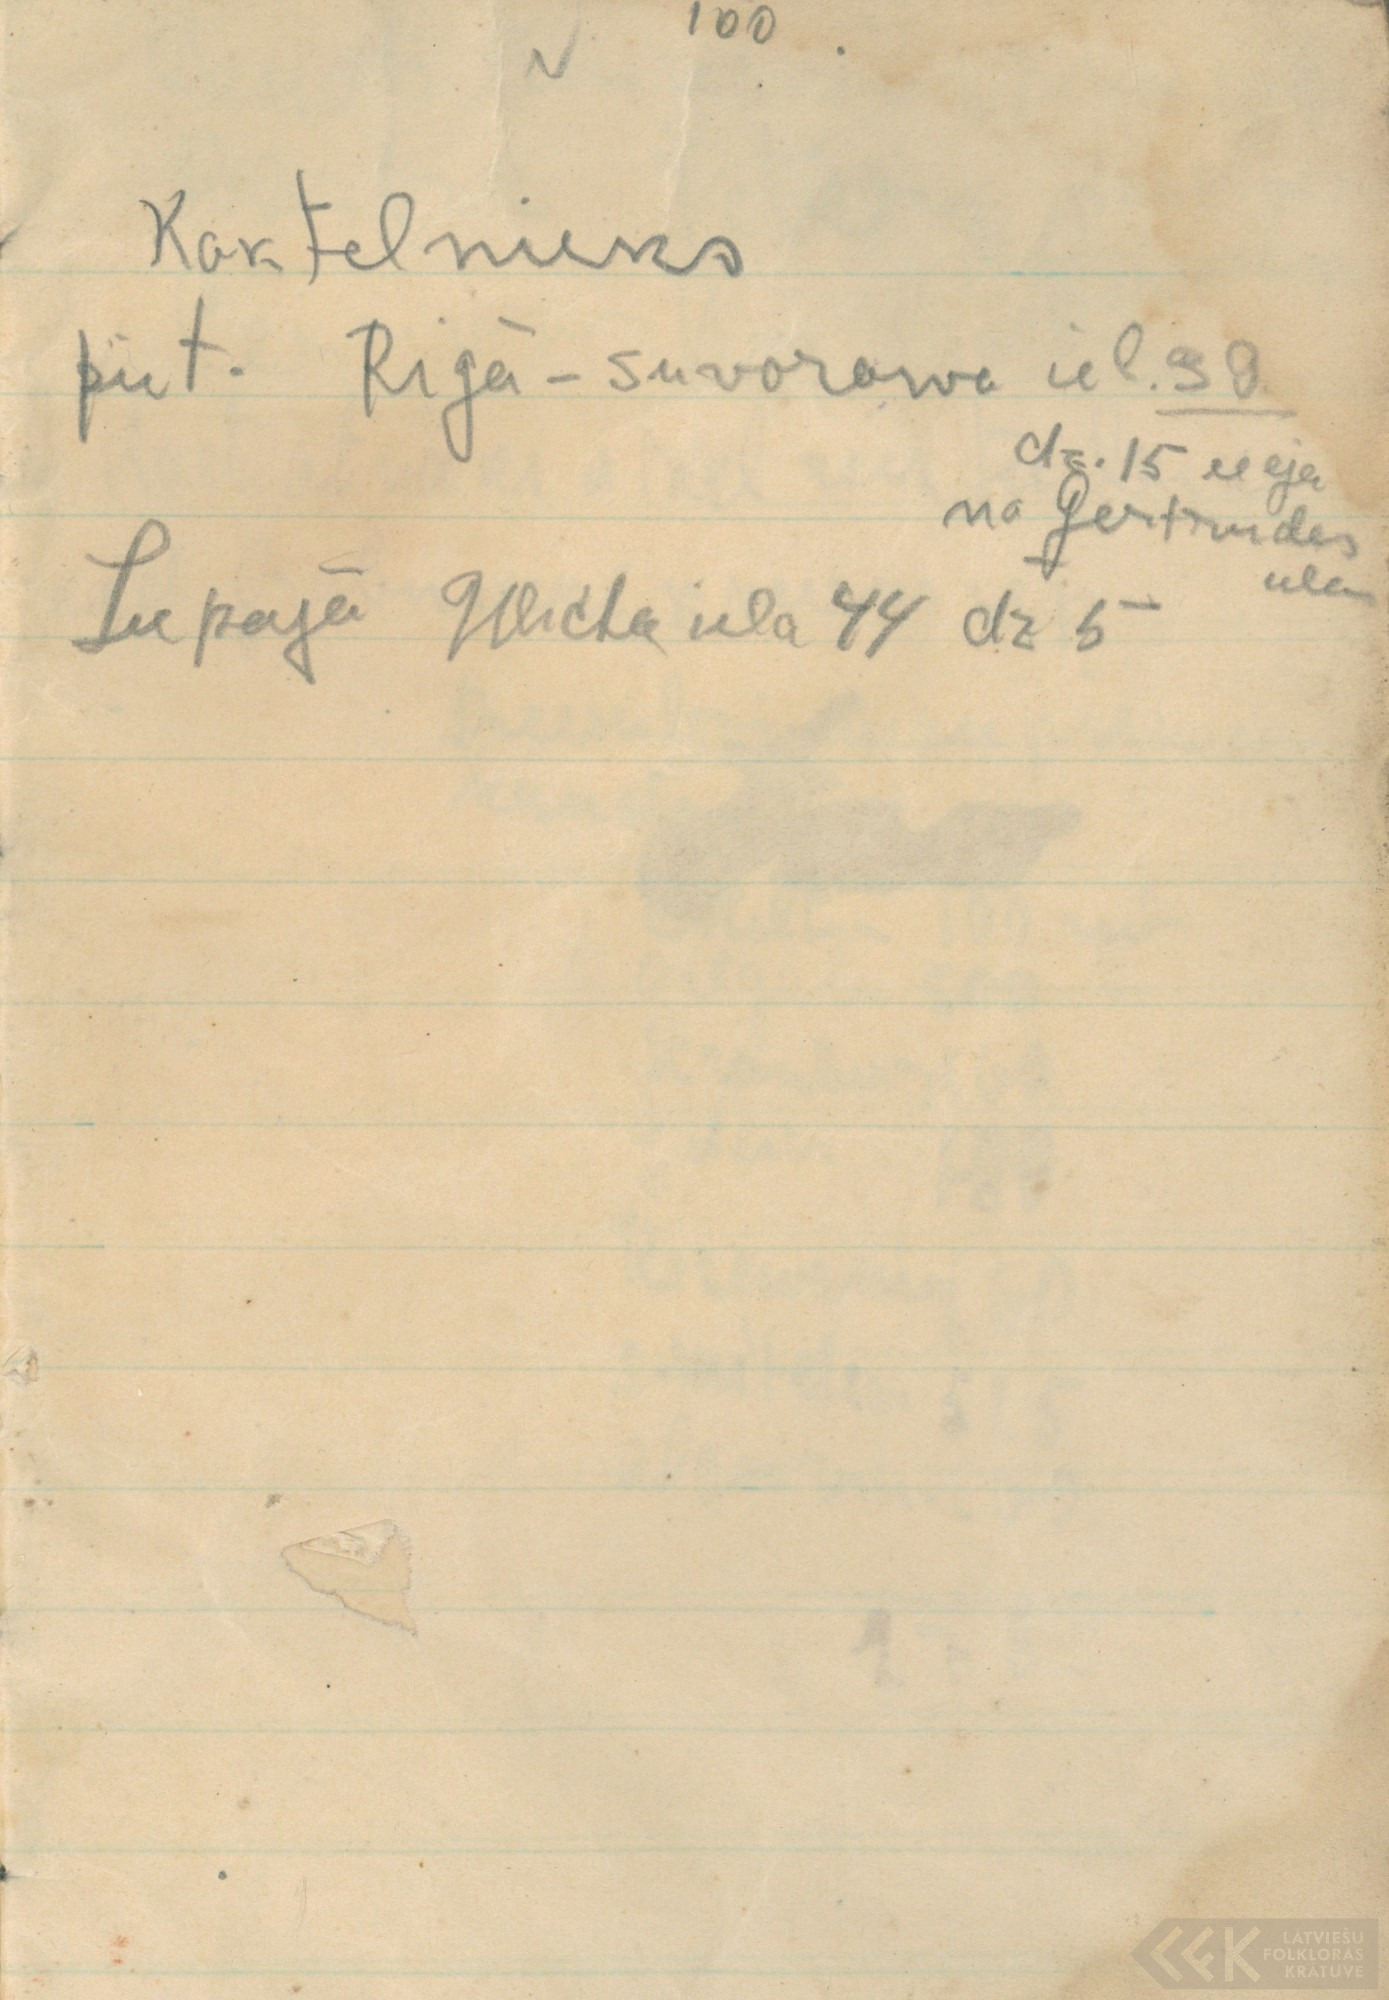 100
Kaktelnieks
piet. Rīgā - suvorowa iel. 39
dz. 15 ieeja
no Ģertrudes
ielas
Liepajā iela 44 dz 5
LATVIEŠU
FOLKLORAS
KRĀTUVE